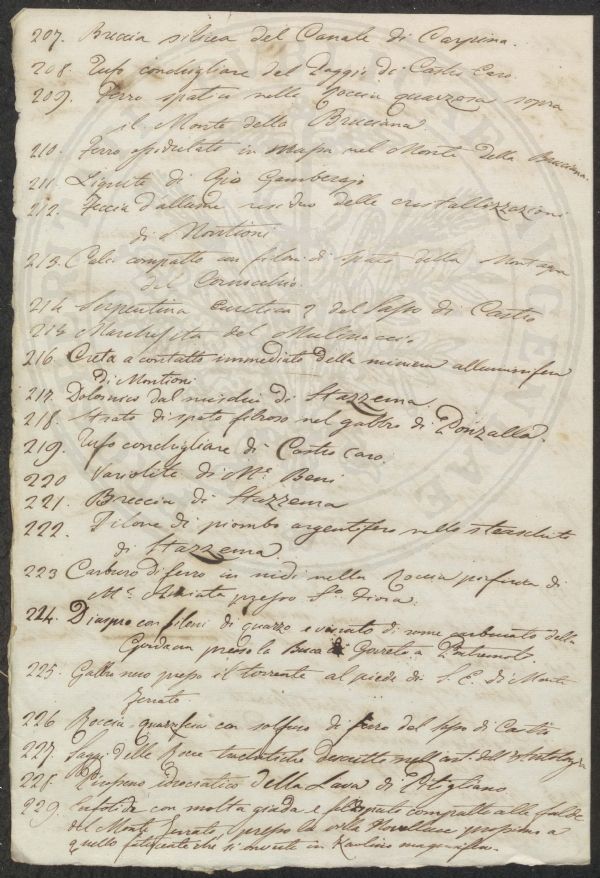 207. Breccia silicea del Canale di Carpina.
208. Tufo conchigliare del Poggio di Castro Caro.
209. Ferro spatico nella Roccia quarzosa sopra
il Monte della Brucciana
210. Ferro ossidulato in massa nel Monte della Brucciana.
211. Lignite di Gio Gamberajo
212. Feccia d'allume residuo delle cristallizzazioni
di Montioni
213. Calce compatta con filoni di spato della Montagna
del Cornocchio.
214 Serpentina del Sasso di Castro
215 Marchesita del Mulinaccio.
216. Creta a contatto immediato della miniera alluminifera
di Montioni
217. Dolomico dal di Stazzema
218. Strato di spato fibroso nel gabbro di Donzalla.
219. Tufo conchigliare di Castro Caro.
220 Variolite di M.e Beni
221. Breccia di Stazzema
222. Filone di piombo argentifero nello steaschisto
di Stazzema.
223 Carburo di ferro in nidi nella Roccia di
M.e Amiata presso S.ta Fiora.
224. Diaspro con filoni di quarzo e di rame carbonato della
presso la Buca di a Pontremoli.
225. Gabbro nero presso il torrente al piede di S. E. di Monte
Ferrato.
226 Roccia quarzosa con solfuro di ferro del Sasso di Castro
227. Saggi delle Rocce trachitiche descritte nell'art. dell'Antologia
228. Pirosseno idrocratico della Lava di Pitigliano
229. Eufotide con molta giada e feldspato compatto alle falde
del Monte Ferrato, presso la villa Novellucci prossimo a
quello che si converte in Kaolino magnesifero.